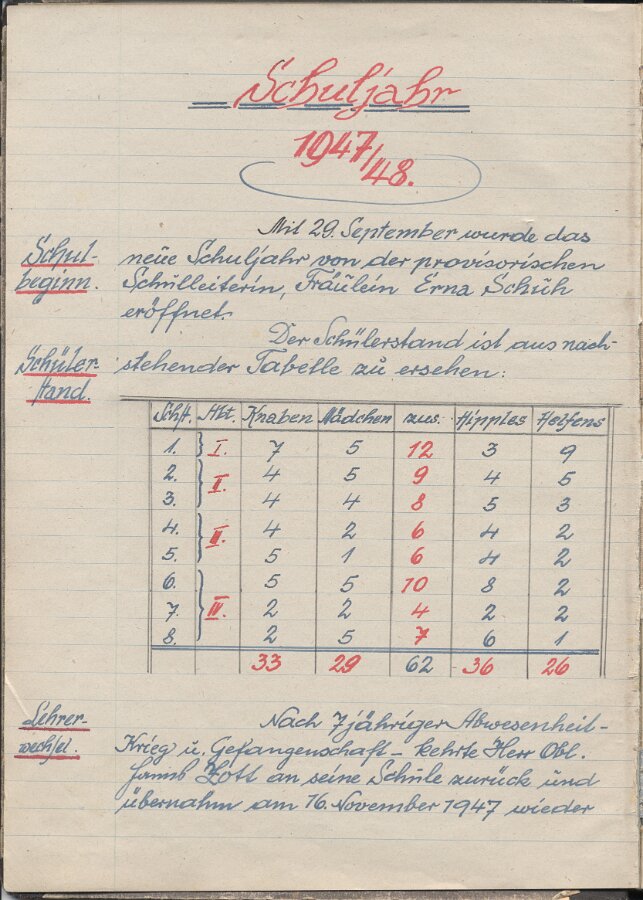 Schuljahr
1947/48.
Mit 29. September wurde das
Schul-
beginn.
neue Schuljahr von der provisorischen
Schulleiterin, Fräulein Erna Schuh
eröffnet.
Der Schülerstand ist aus nach-
Schüler-
stand.
stehender Tabelle zu ersehen:
Schst. Abt. Knaben Mädchen zus. Hipples Helfens
1. I. 7 5 12 3 9
2. II. 4 5 9 4 5
3. 4 4 8 5 3
4. III. 4 2 6 4 2
5. 5 1 6 4 2
6. IV. 5 5 10 8 2
7. 2 2 4 2 2
8. 2 5 7 6 1
33 29 62 36 26
Lehrer-
wechsel.
Nach 7jähriger Abwesenheit -
Krieg u. Gefangenschaft - kehrte Herr Obl.
Zott an seine Schule zurück und
übernahm am 16. November 1947 wieder